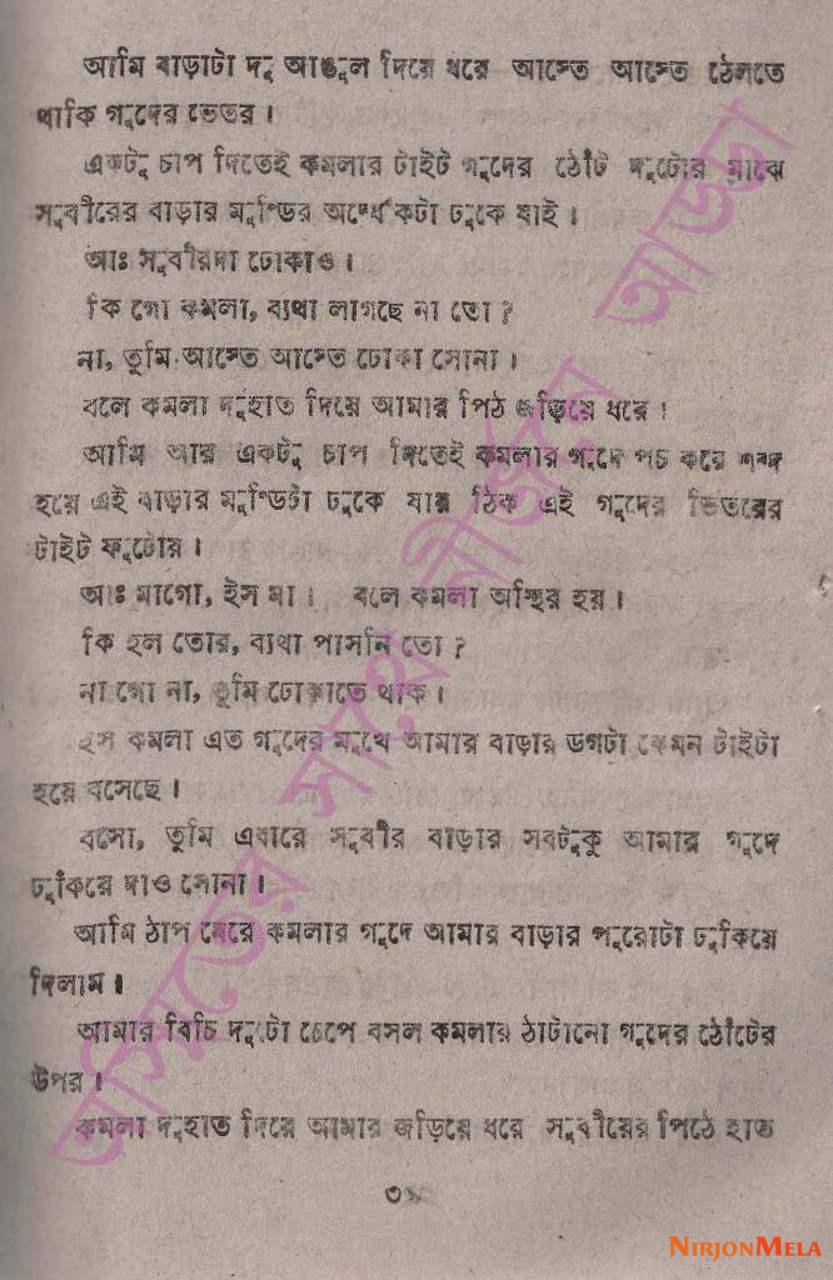 আমি বাড়াটা দু আঙুল দিয়ে ধরে আস্তে আস্তে ঠেলতে
থাকি গুদের ভেতর।
একটু চাপ দিতেই কমলার টাইট গুদের ঠোঁট দুটোর মাঝে
সুবীরের বাড়ার মুণ্ডির অর্ধেকটা ঢুকে যাই।
আঃ সুবীরদা ঢোকাও।
কি গো কমলা, ব্যথা লাগছে না তো?
না, তুমি আস্তে আস্তে ঢোকা সোনা।
বলে কমলা দুহাত দিয়ে আমার পিঠ জড়িয়ে ধরে।
আমি আর একটু চাপ দিতেই কমলার গুদে পচ করে শব্দ
হয়ে এই বাড়ার মুণ্ডিটা ঢুকে যায় ঠিক এই গুদের ভিতরের
টাইট ফুটোয়।
আঃ মাগো, ইস মা। বলে কমলা অস্থির হয়।
কি হল তোর, ব্যথা পাসনি তো?
না গো না, তুমি ঢোকাতে থাক।
ইস কমলা এত গুদের মুখে আমার বাড়ার ডগটা কেমন টাইটা
হয়ে বসেছে।
বসো, তুমি এবারে সুবীর বাড়ার সবটুকু আমার গুদে
ঢুকিয়ে দাও সোনা।
আমি ঠাপ মেরে কমলার গুদে আমার বাড়ার পুরোটা ঢুকিয়ে
দিলাম।
আমার বিচি দুটো চেপে বসল কমলার ঠাটানো গুদের ঠোঁটের
উপর।
কমলা দুহাত দিয়ে আমার জড়িয়ে ধরে সুবীরের পিঠে হাত
আমাদের সাথে নীর্জন আড্ডা
NIRJONMELA